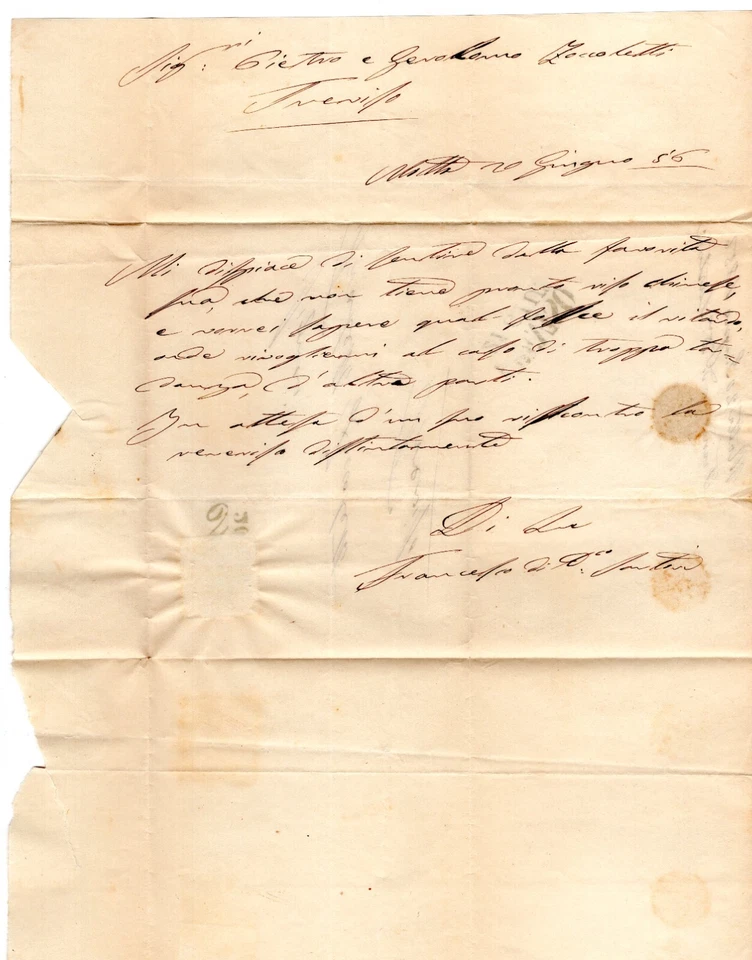 Sig.ri Pietro e Gerolamo Zoccoletti
Treviso
Motta 20 Giugno 56
Mi dispiace di sentire dalla favorita
sua, che non tiene pronto riso chinese,
e vorrei sapere qual fosse il ritardo,
onde rivogliermi al caso di troppa tar=
danza, d'altre parti.
In attesa d'un suo riscontro la
reverisco distintamente
Di Lei
Francesco di D.co
25